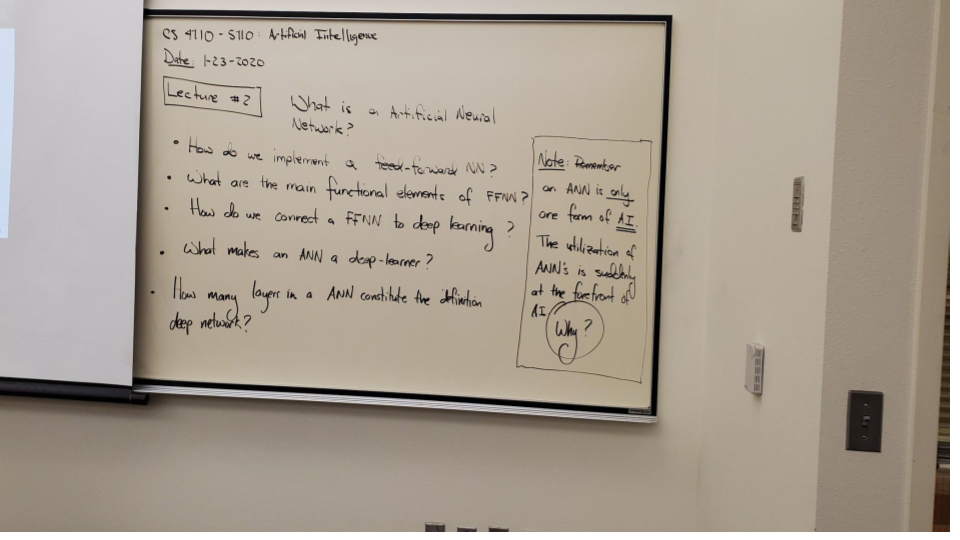 CS 4710 - 5710: Artificial Intelligence
Date: 1-23-2020
Lecture #2
What is a Artificial Neural
Network?
• How do we implement a feed-forward NN?
• What are the main functional elements of FFNN?
• How do we connect a FFNN to deep learning?
• What makes an ANN a deep-learner?
• How many layers in a ANN constitute the definition
deep network?
Note: Remember
an ANN is only
one form of AI.
The utilization of
ANN's is suddenly
at the forefront of
AI.
Why?